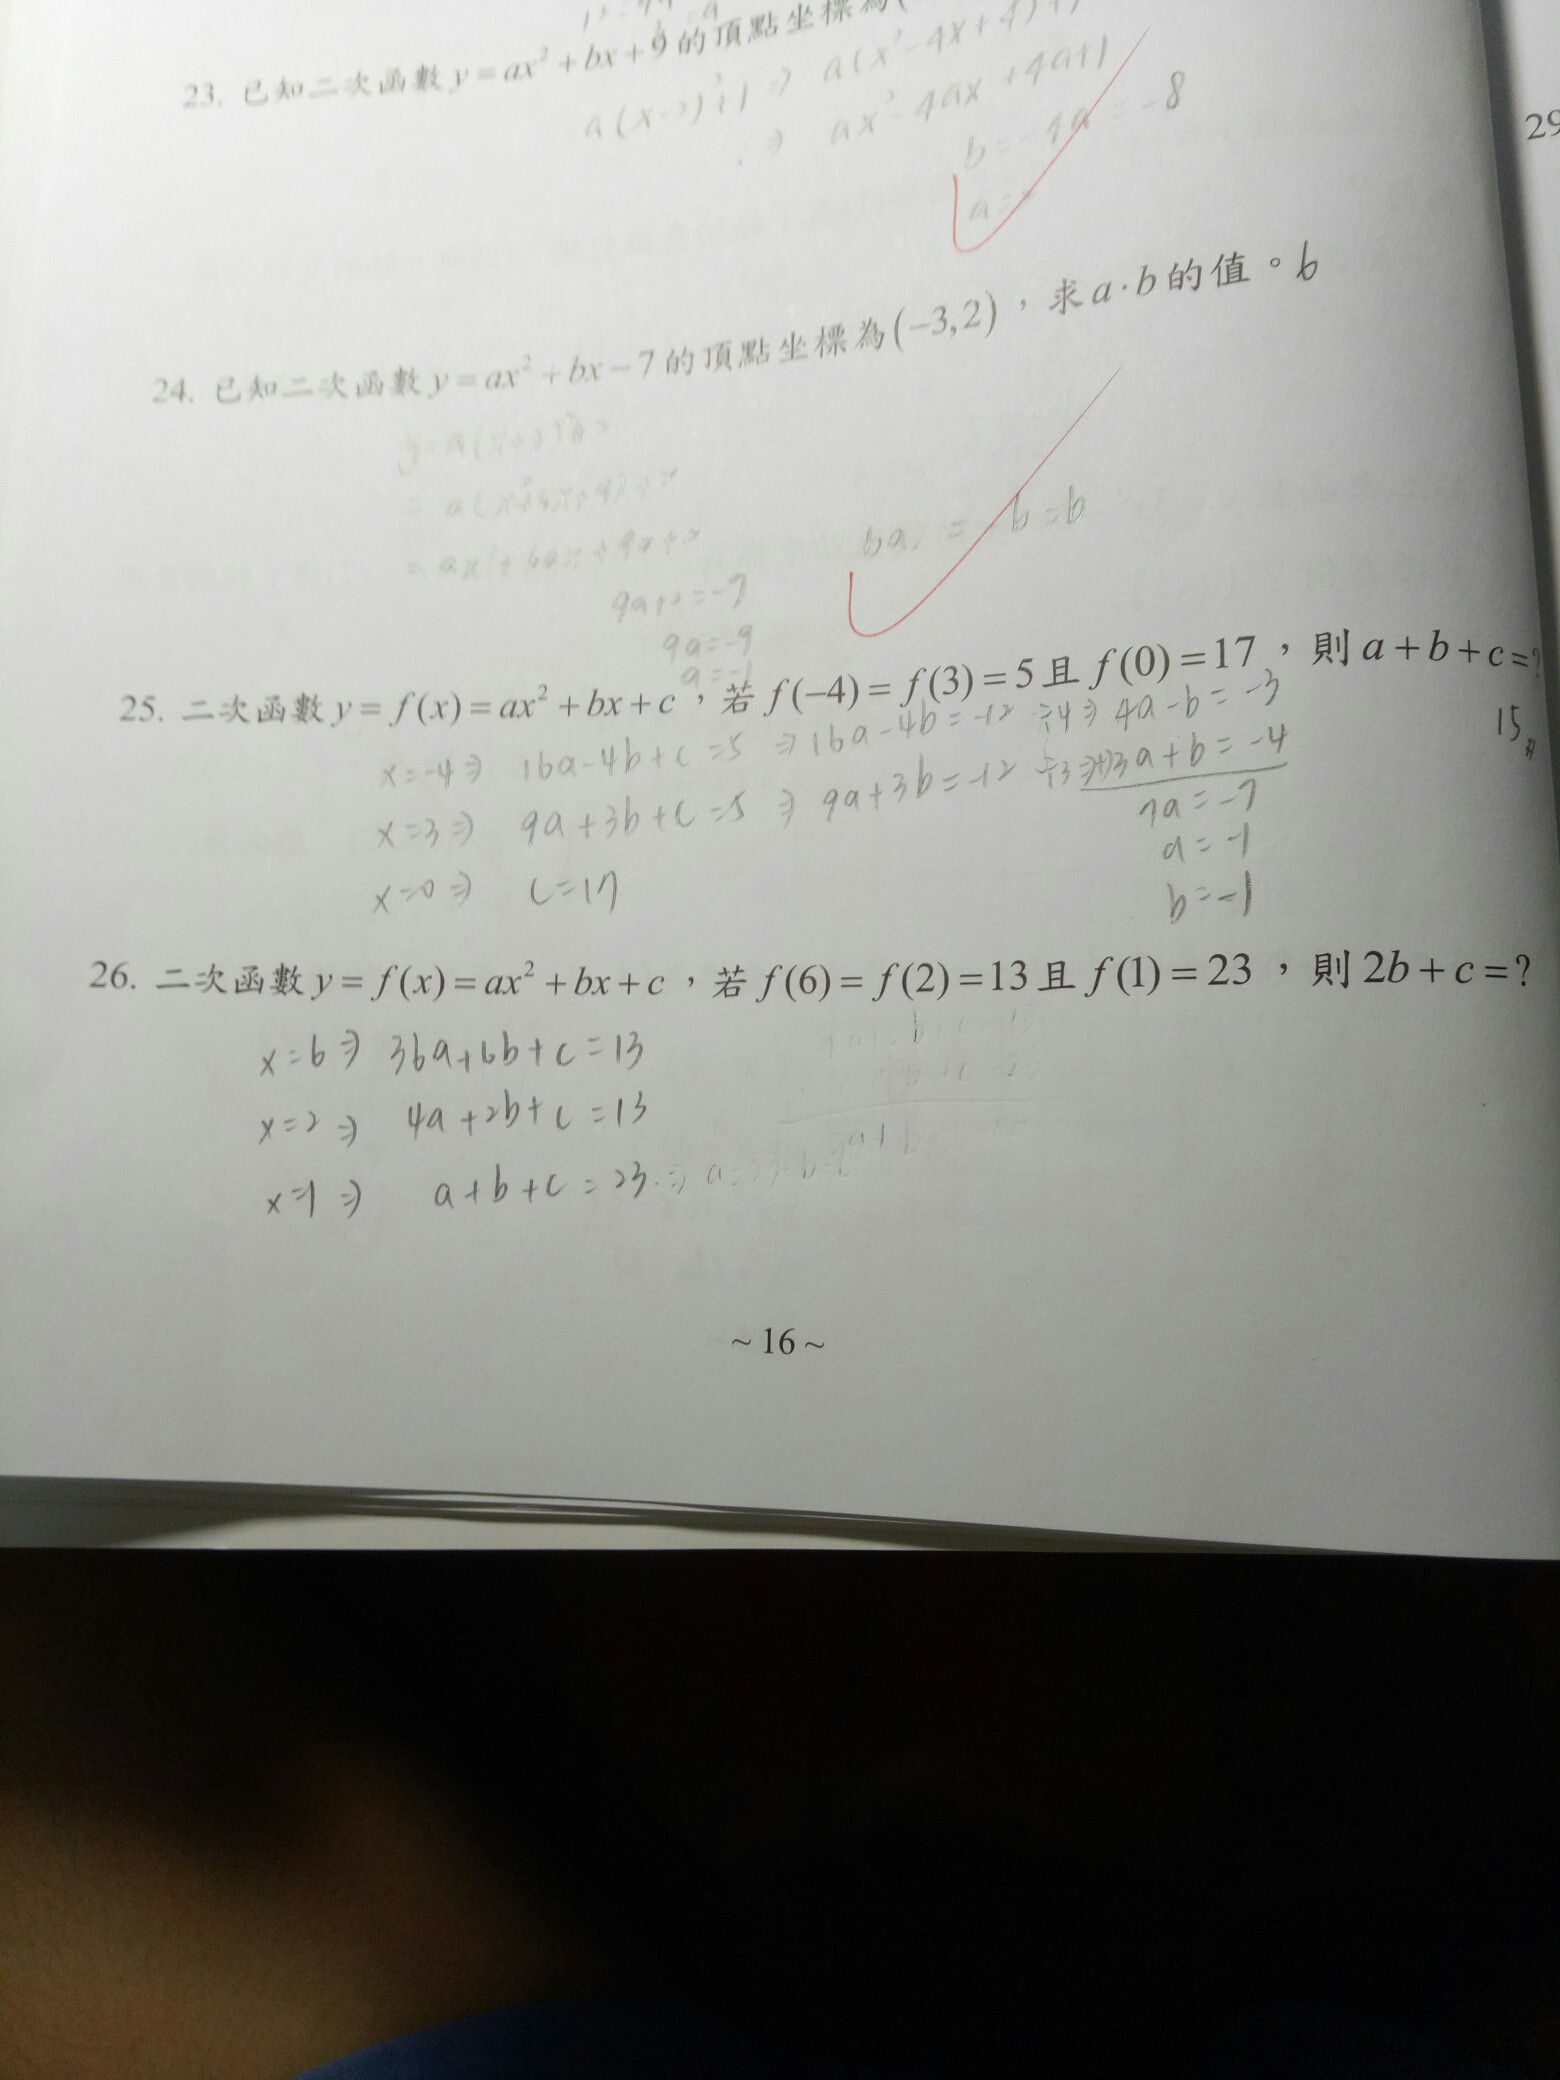 23. 已知二次函數 y=ax²+bx+9的頂點坐標為(
a(x-2)²+1 ⇒ a(x²-4x+4)+1
⇒ ax²-4ax+4a+1
b=-4a=-8
a=2
24. 已知二次函數 y=ax²+bx-7的頂點坐標為(-3,2)，求a·b的值。6
y=a(x+3)²+2
= a(x²+6x+9)+2
= ax²+6ax+9a+2
9a+2=-7
9a=-9
a=-1
6a=-6=b
25. 二次函數 y=f(x)=ax²+bx+c，若 f(-4)=f(3)=5 且 f(0)=17，則 a+b+c=?
15
x=-4⇒ 16a-4b+c=5 ⇒ 16a-4b=-12 ÷4⇒ 4a-b=-3
x=3⇒ 9a+3b+c=5 ⇒ 9a+3b=-12 ÷3⇒+)3a+b=-4
7a=-7
a=-1
x=0⇒ c=17
b=-1
26. 二次函數 y=f(x)=ax²+bx+c，若 f(6)=f(2)=13 且 f(1)=23，則 2b+c=?
x=6⇒ 36a+6b+c=13
x=2⇒ 4a+2b+c=13
x=1⇒ a+b+c=23
~16~
29